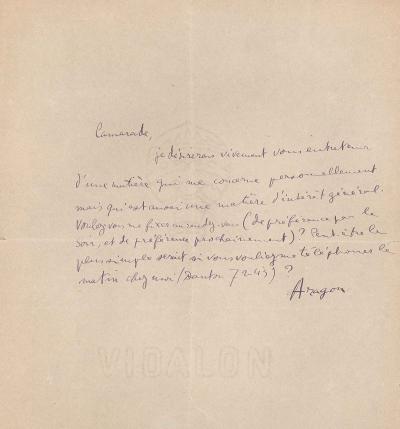 Camarade,
je désirerais vivement vous entretenir
d'une matière qui me concerne personnellement
mais qui est aussi une matière d'intérêt général.
Voulez-vous me fixer un rendez-vous (de préférence pas le
soir, et de préférence prochainement)? Peut-être le
plus simple serait si vous vouliez me téléphoner le
matin chez moi (Danton 72-43) ?
Aragon
VIDALON